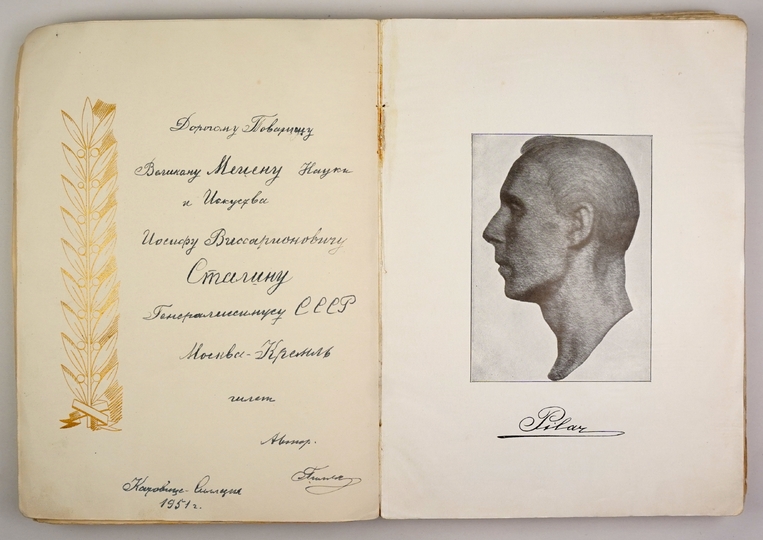 Дорогому Товарищу
Великану Мецену Науки
и Искуства
Иосифу Виссарионовичу
Сталину
Генералиссимусу СССР
Москва-Кремль
Автор.
1951 г.
Pilar